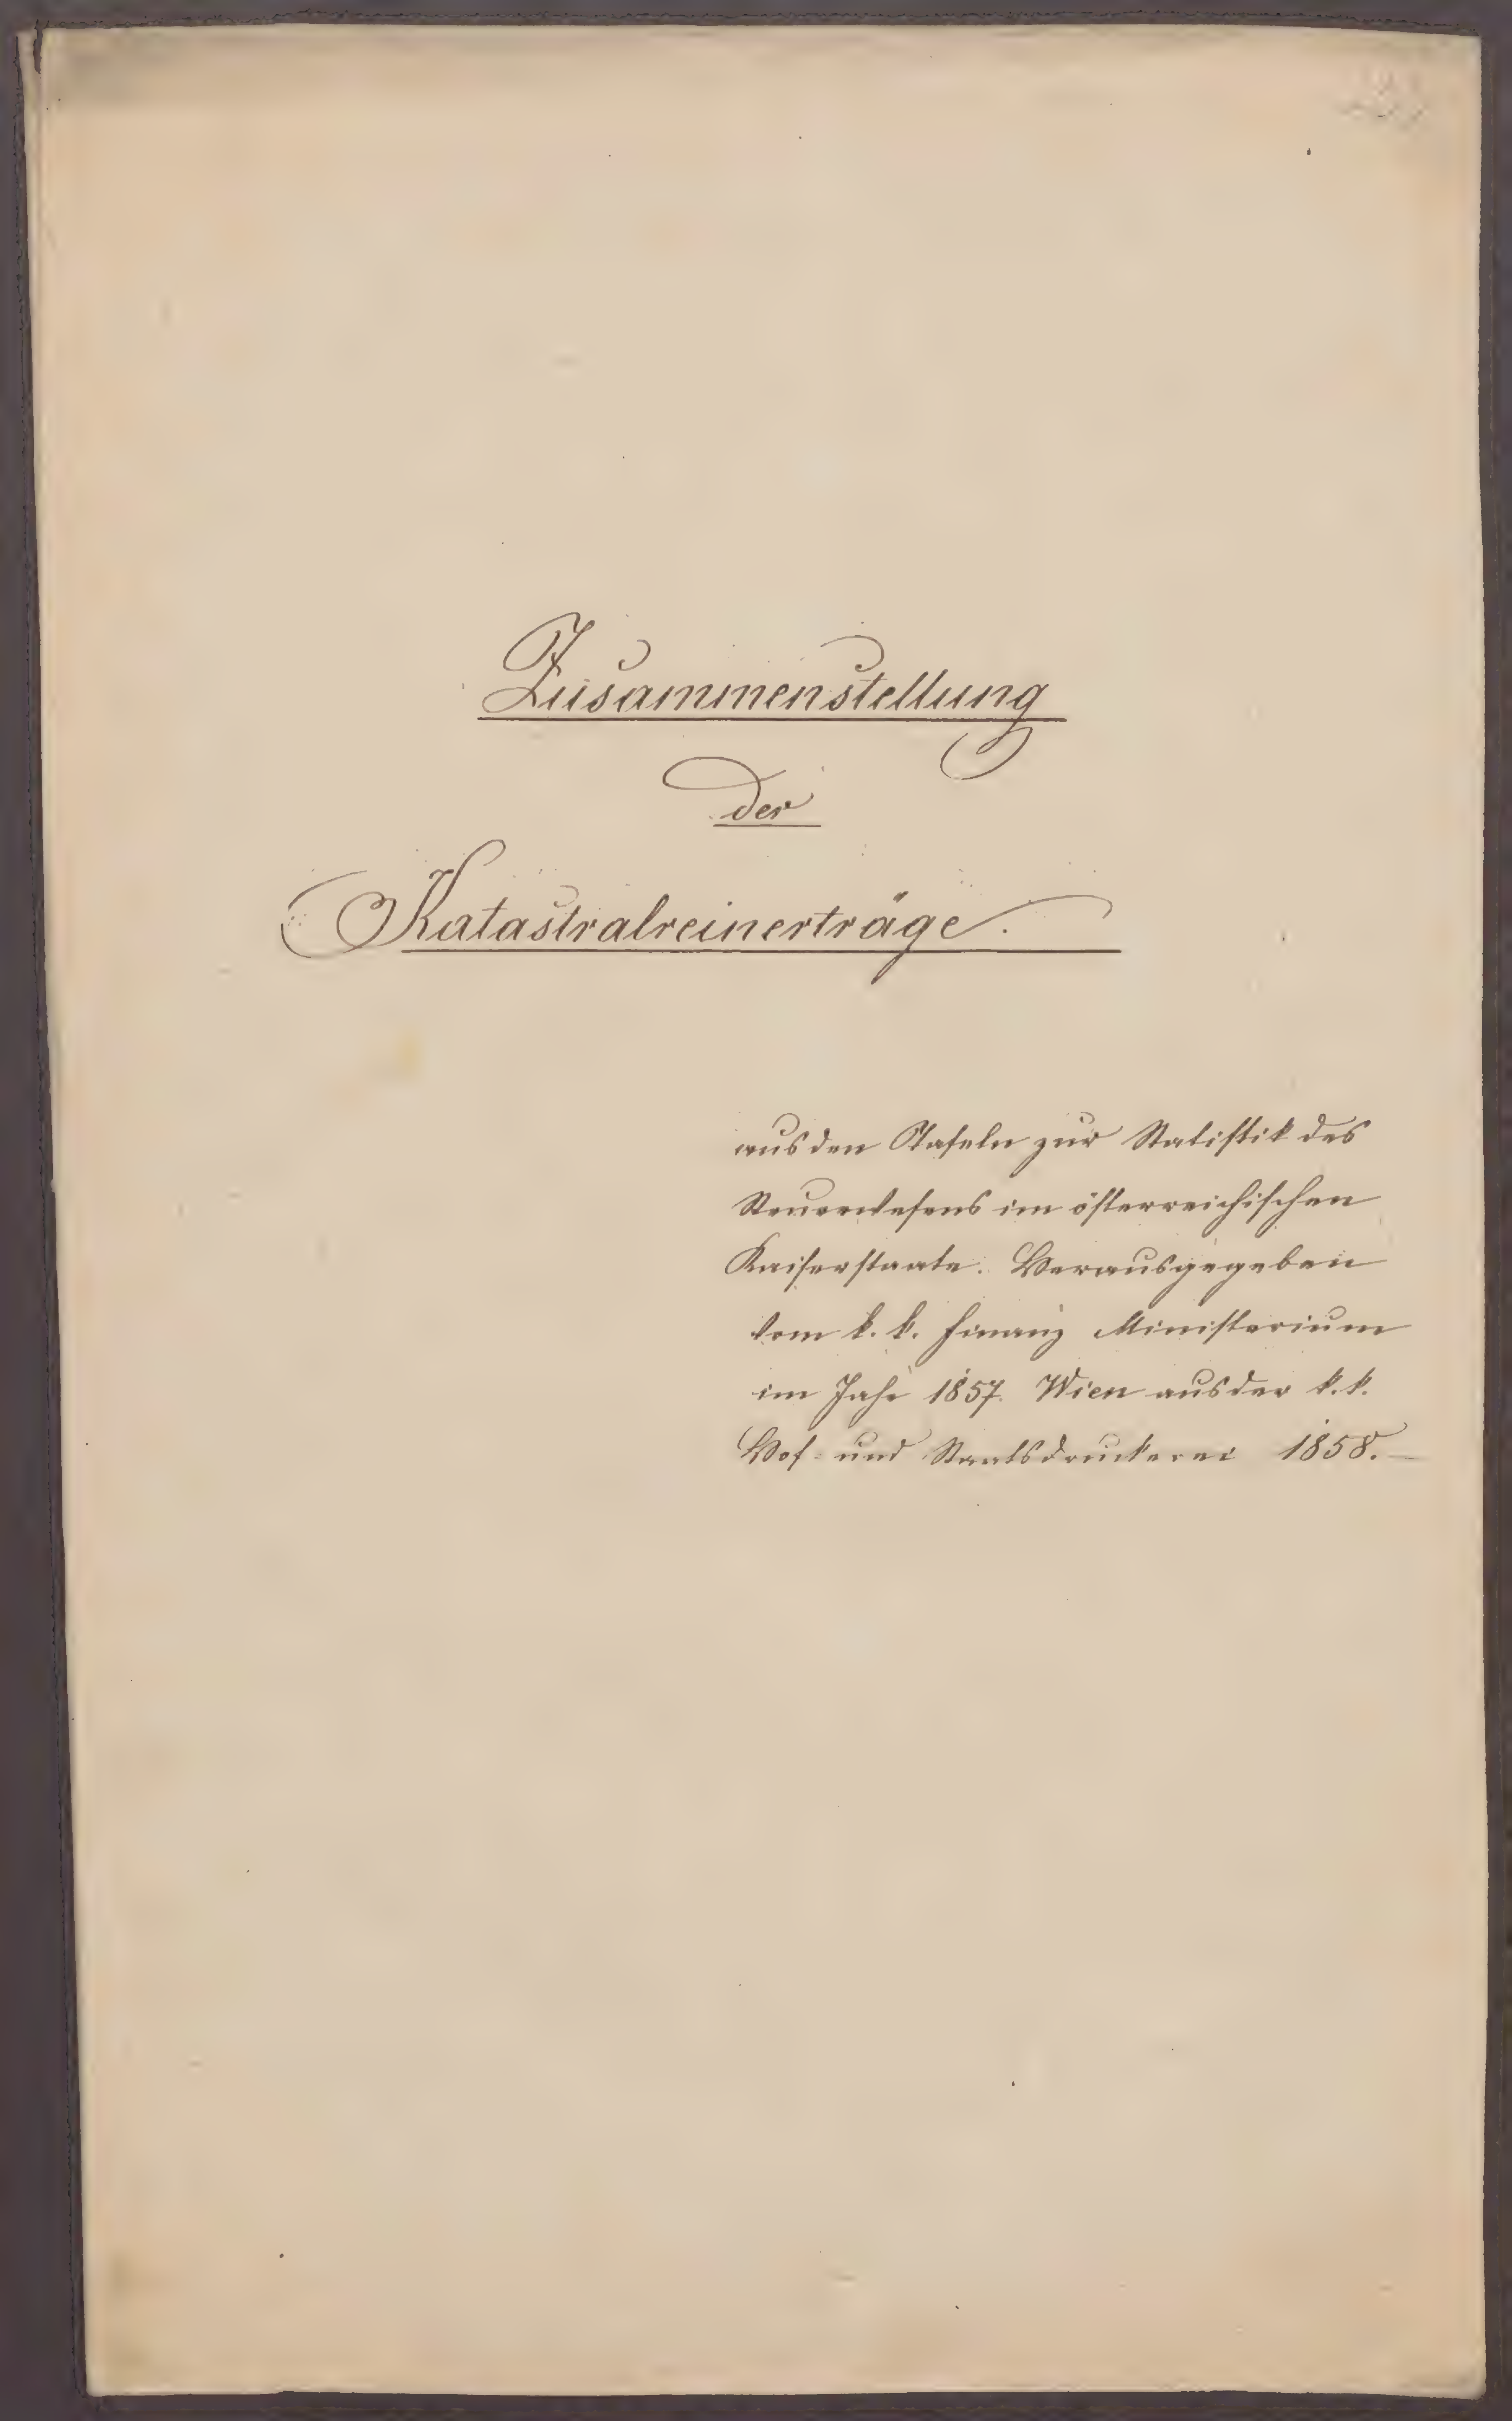 Zusammenstellung
der
Katastralreinerträge.
aus den Tafeln zur Statistik des
Steuerwesens im österreichischen
Kaiserstaate. Herausgegeben
vom k. k. Finanz Ministerium
im Jahr 1857. Wien aus der k. k.
Hof- und Staatsdruckerei 1858.